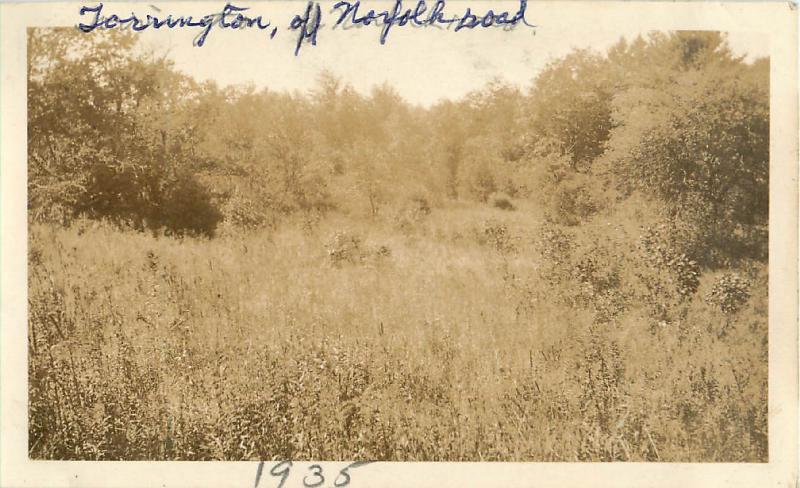 Torrington, off Norfolk road
1935